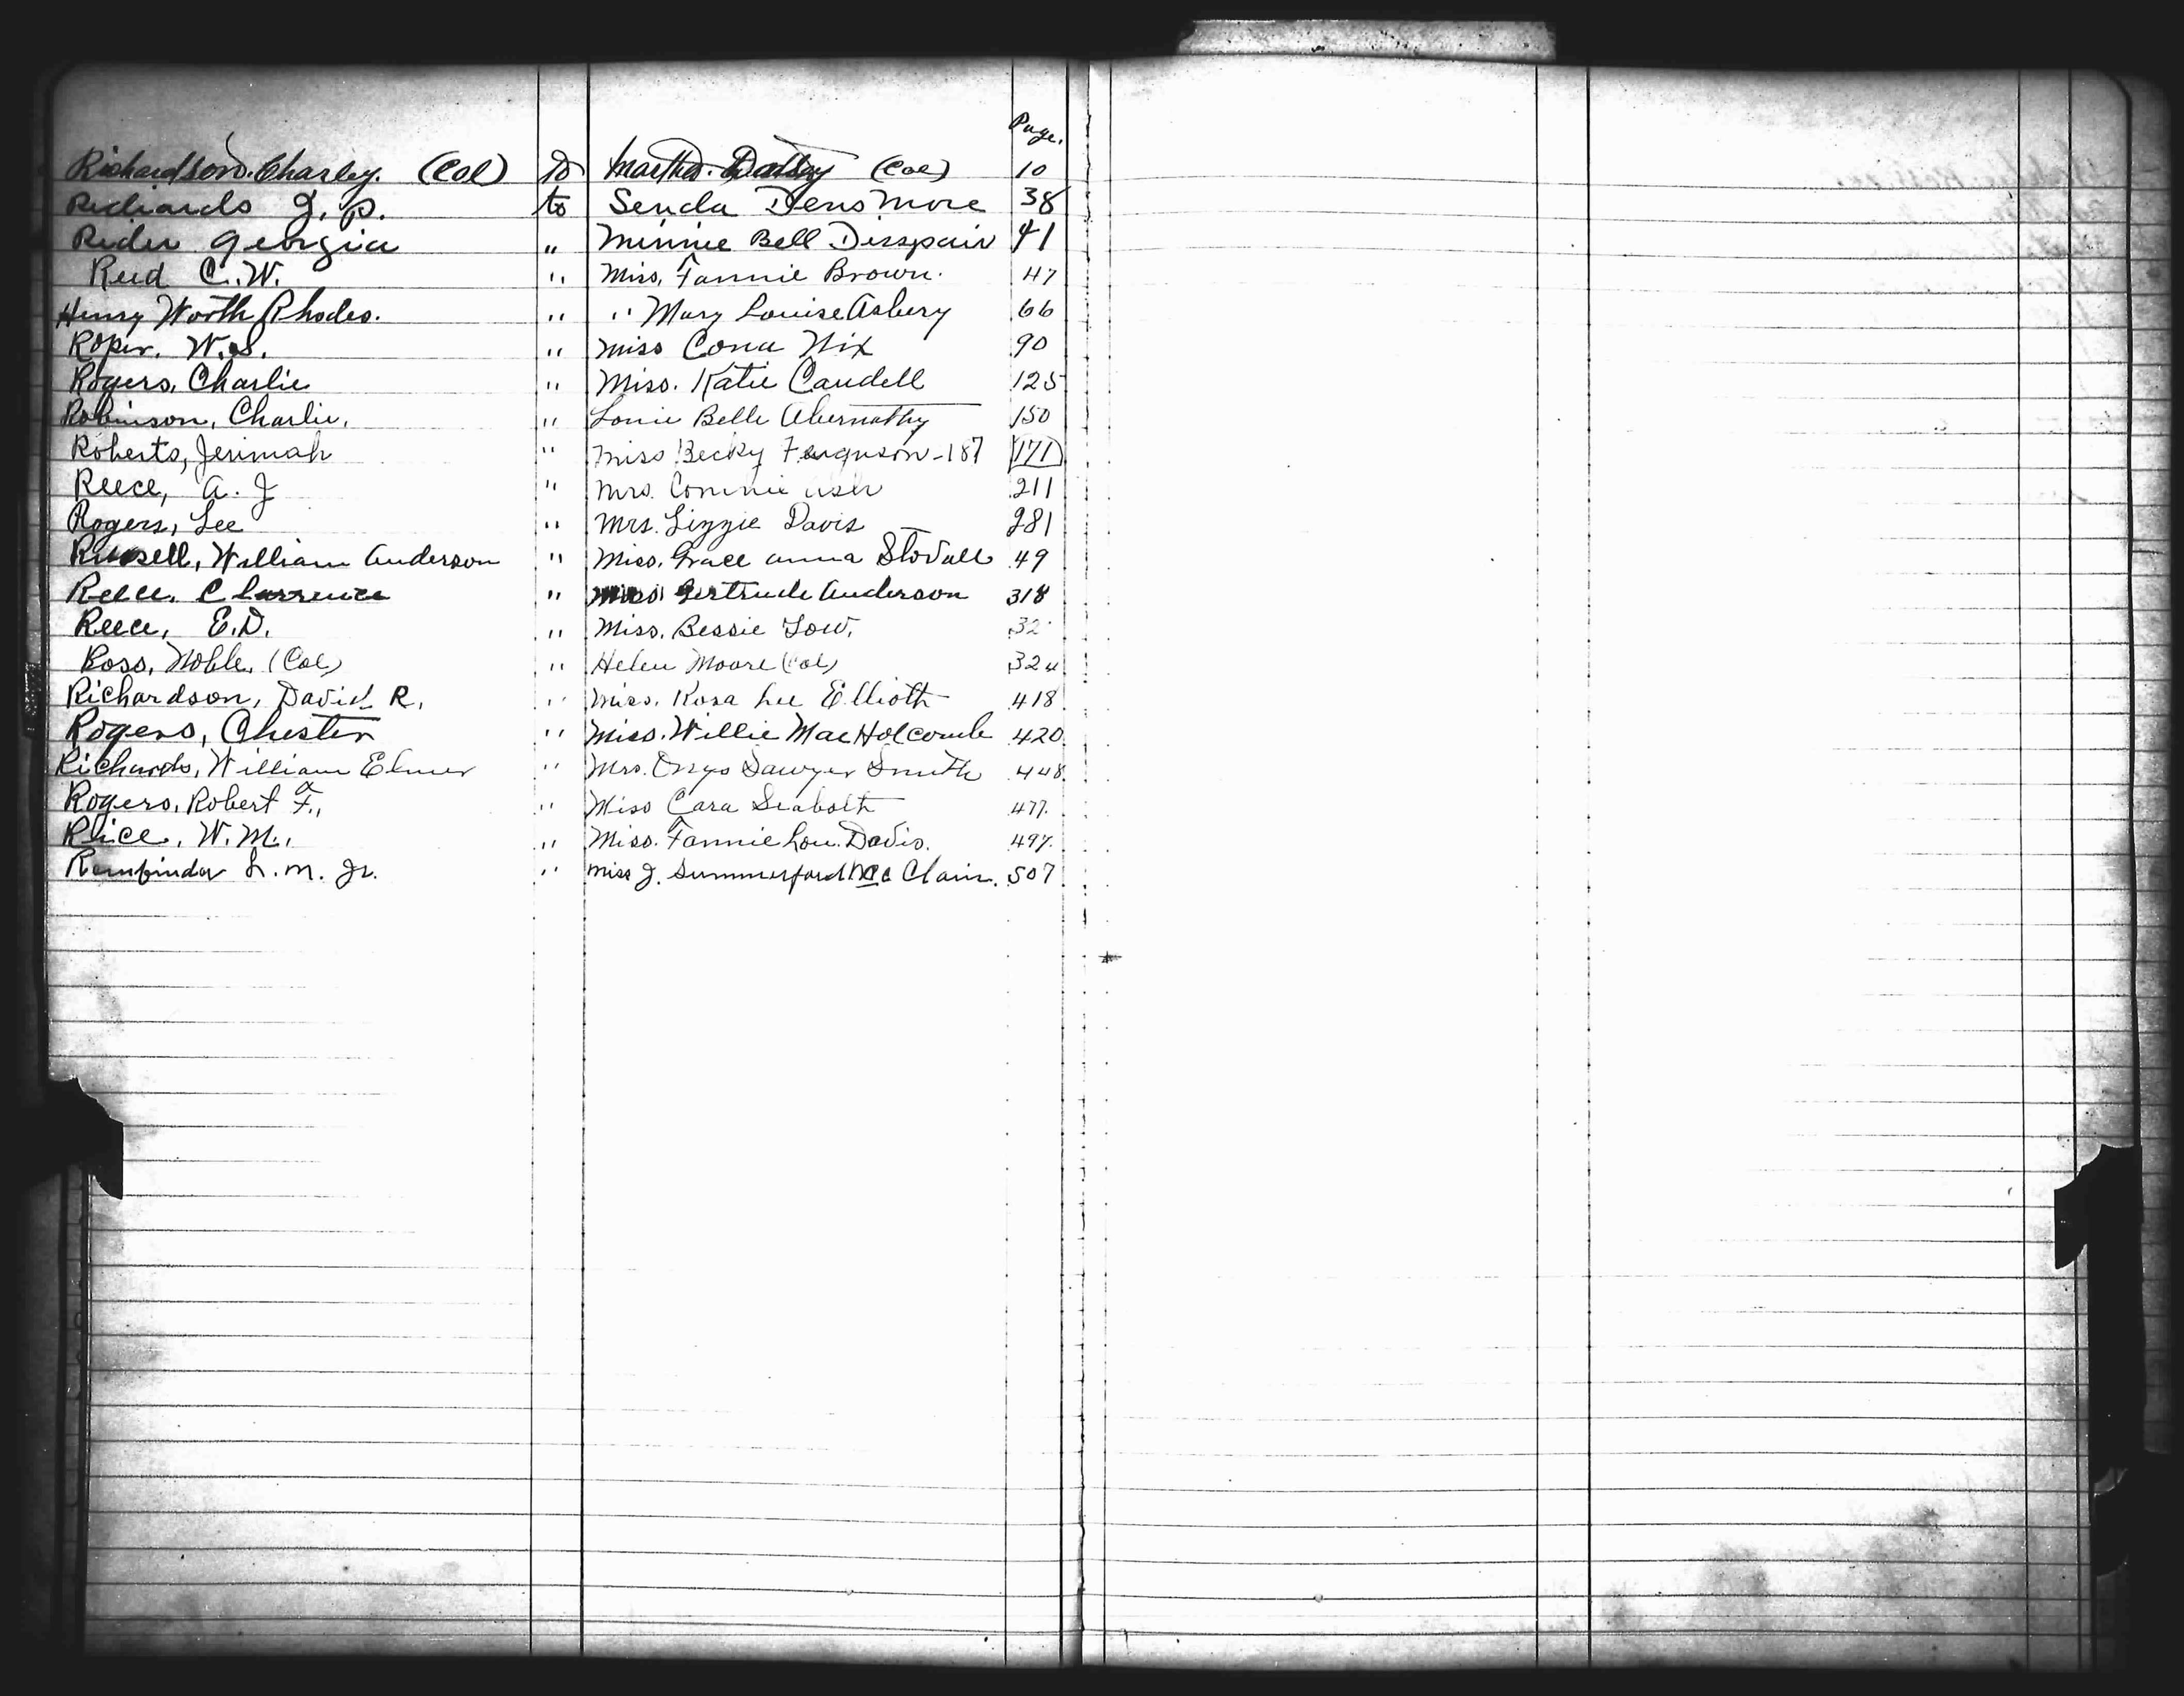 Page.
Richardson. Charley. (Col) to Martha (Col) 10
Richards J. P. to Senda Densmore 38
Rider Georgia " Minnie Bell Disspain 41
Reid C. W. " Miss. Fannie Brown. 47
Henry Worth Rhodes. " " Mary Louise Asbery 66
Roper. W. S. " Miss Cona Nix 90
Rogers, Charlie " Miss. Katie Caudell 125
Robinson, Charlie, " Lonie Belle Abernathy 150
Roberts, Jerimah " Miss Becky Ferguson - 187 171
Reece, A. J " Mrs. Connie 211
Rogers, Lee " Mrs. Lizzie Davis 281
Russell, William Anderson " Miss. Grace Anna Stovall 49
Reece. Clarrence " Miss Gertrude Anderson 318
Reece, E. D. " Miss. Bessie Low. 32
Ross, Noble, (Col) " Helen Moore (Col) 324
Richardson, David R. " Miss. Rosa Lee Elliott 418
Rogers, Chester " Miss. Willie Mae Holcomb 420
Richards, William Elmer " Mrs. Sawyer Smith 448.
Rogers, Robert F., " Miss Cara Seabolt 477.
Rice, W. M., " Miss. Fannie Lou Davis. 497.
L. M. Jr. " Miss J. Summerford Mc Clain. 507